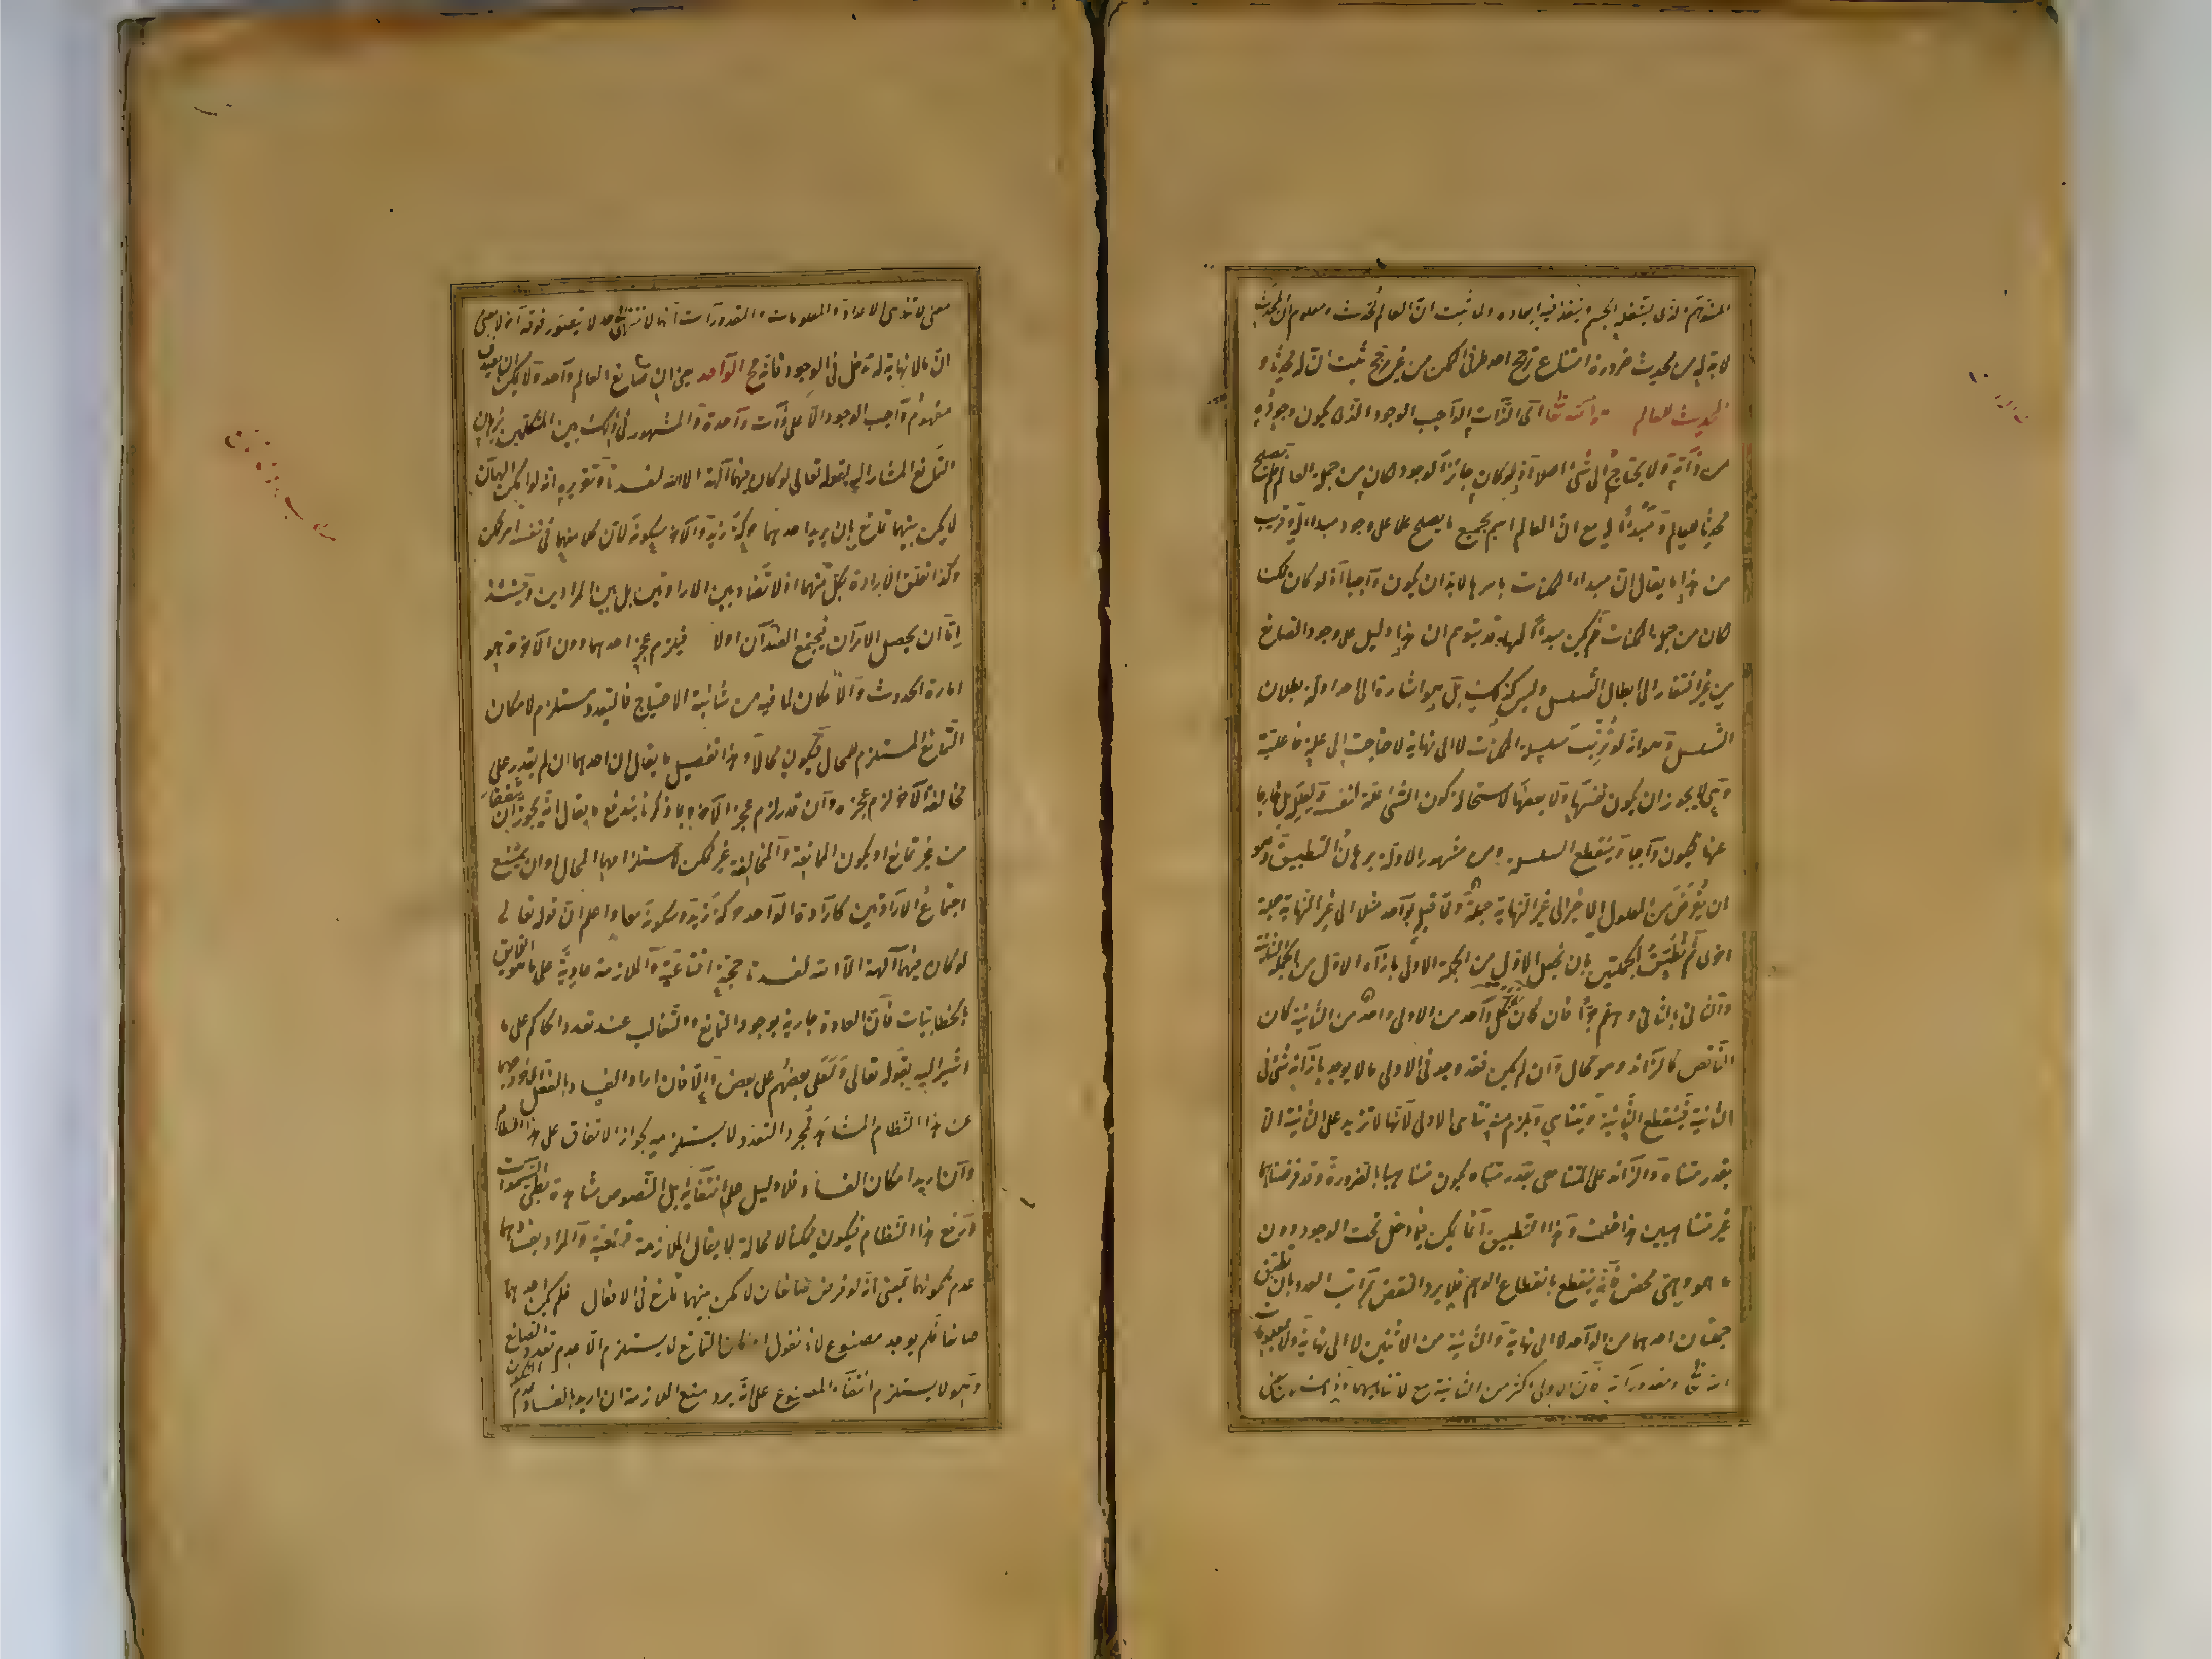 المتوهم الذى يشغله الجسم وينفذ فيه ابعاده ولما ثبت ان العالم محدث ومعلوم ان المحدث
لا بد له من محدث ضرورة امتناع ترجح احد طرفى الممكن من غير مرجح ثبت ان له محدثا و
المحدث للعالم هو الله تعالى اى الذات الواجب الوجود الذى يكون وجوده
من ذاته ولا يحتاج الى شئ اصلا اذ لو كان جائز الوجود لكان من جملة العالم فلم يصلح
محدثا للعالم ومبدأ له مع ان العالم اسم لجميع ما يصلح علما على وجود مبدا له وقريب
من هذا ما يقال ان مبدا الممكنات باسرها لا بد ان يكون واجبا اذ لو كان ممكنا
لكان من جملة الممكنات فلم يكن مبدأ لها وقد يتوهم ان هذا دليل على وجود الصانع
من غير افتقار الى ابطال التسلسل وليس كذلك بل هو اشارة الى احد ادلة بطلان
التسلسل وهو انه لو ترتبت سلسلة الممكنات لا الى نهاية لاحتاجت الى علة
وهى لا يجوز ان يكون نفسها ولا بعضها لاستحالة كون الشئ علة لنفسه ولعلله بل خارجا
عنها فيكون واجبا وينقطع السلسلة ومن مشهور الادلة برهان التطبيق وهو
ان يفرض من المعلول الاخير الى غير النهاية جملة ومما قبله بواحد مثلا الى غير النهاية جملة
اخرى ثم نطبق الجملتين بان نجعل الاول من الجملة الاولى بازاء الاول من الجملة الثانية
والثانى بالثانى وهلم جرا فان كان بكل واحد من الاولى واحد من الثانية كان
الناقص كالزائد وهو محال وان لم يكن فقد وجد فى الاولى ما لا يوجد بازائه شئ فى
الثانية فينقطع الثانية ويتناهى ويلزم منه تناهى الاولى لانها لا تزيد على الثانية الا
بقدر متناه والزائد على المتناهى بقدر متناه يكون متناهيا بالضرورة وقد فرضناهما
غير متناهيين هذا خلف وهذا التطبيق انما يمكن فيما دخل تحت الوجود دون
ما هو وهمى محض فانه ينقطع بانقطاع الوهم فلا يرد النقض بمراتب العدد بان تطبق
جملتان احدهما من الواحد لا الى نهاية والثانية من الاثنين لا الى نهاية ولا بمعلومات
الله تعالى ومقدوراته فان الاولى اكثر من الثانية مع لا تناهيهما وذلك لان
معنى لا تناهى الاعداد والمعلومات والمقدورات انها لا تنتهى الى حد لا يتصور فوقه آخر لا بمعنى
ان ما لا نهاية له يدخل فى الوجود فانه مح الواحد يعنى ان صانع العالم واحد ولا يمكن ان يصدق
مفهوم واجب الوجود الا على ذات واحدة والمشهور فى ذلك بين المتكلمين برهان
التمانع المشار اليه بقوله تعالى لو كان فيهما آلهة الا الله لفسدتا وتقريره انه لو امكن الهان
لامكن بينهما تمانع بان يريد احدهما حركة زيد والآخر سكونه لان كلا منهما فى نفسه امر ممكن
وكذا تعلق الارادة بكل منهما اذ لا تضاد بين الارادتين بل بين المرادين وحينئذ
اما ان يحصل الامران فيجتمع الضدان اولا فيلزم عجز احدهما دون الآخر وهو
امارة الحدوث والامكان لما فيه من شائبة الاحتياج فالتعدد مستلزم لامكان
التمانع المستلزم للمحال فيكون محالا وهذا تفصيل ما يقال ان احدهما ان لم يقدر على
مخالفة الآخر لزم عجزه وان قدر لزم عجز الآخر وبما ذكرنا يندفع ما يقال انه يجوز ان يتفقا
من غير تمانع او يكون الممانعة والمخالفة غير ممكن لاستلزامهما المحال او ان يمتنع
اجتماع الارادتين كارادة الواحد حركة زيد وسكونه معا واعلم ان قوله تعالى
لو كان فيهما آلهة الا الله لفسدتا حجة اقناعية والملازمة عادية على ما هو اللايق
بالخطابيات فان العادة جارية بوجود التمانع والتغالب عند تعدد الحاكم على ما
اشير اليه بقوله تعالى ولعلى بعضهم على بعض والا فان اراد الفساد بالفعل اى خروجهما
عن هذا النظام المشاهد فمجرد التعدد لا يستلزمه لجواز الاتفاق على هذا النظام
وان اريد امكان الفساد فلا دليل على انتفائه بل النصوص شاهدة بطى السموات
ورفع هذا النظام فيكون ممكنا لا محالة لا يقال الملازمة قطعية والمراد بفسادهما
عدم تكونهما بمعنى انه لو فرض صانعان لامكن بينهما تمانع فى الافعال فلم يكن احدهما
صانعا فلم يوجد مصنوع لانا نقول امكان التمانع لا يستلزم الا عدم تعدد الصانع
وهو لا يستلزم انتفاء المصنوع على انه يرد منع الملازمة ان اريد بالفساد عدم التكون